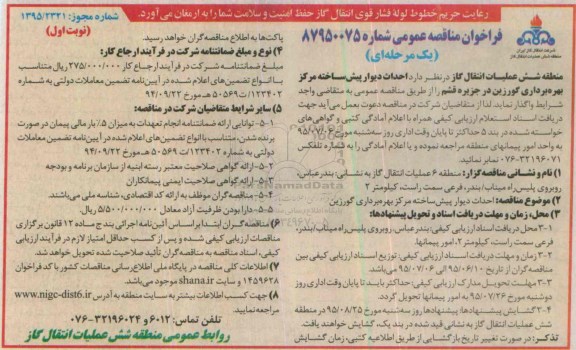 رعایت حریم خطوط لولهٔ فشار قوی انتقال گاز حفظ امنیت و سلامت شما را به ارمغان می‌آورد.
شماره مجوز: ۱۳۹۵/۲۳۲۱
(نوبت اول)
فراخوان مناقصه عمومی شماره ۸۷۹۵۰۰۷۵
(یک مرحله‌ای)
منطقه شش عملیات انتقال گاز در نظر دارد احداث دیوار پیش‌ساخته مرکز
بهره‌برداری گورزین در جزیره قشم را از طریق مناقصه عمومی به متقاضی واجد
شرایط واگذار نماید. لذا از متقاضیان شرکت در مناقصه دعوت بعمل می‌آید جهت
دریافت اسناد استعلام ارزیابی کیفی همراه با اعلام آمادگی کتبی و گواهی‌های
خواسته شده در بند ۵ حداکثر تا پایان وقت اداری روز سه‌شنبه مورخ ۹۵/۰۷/۰۶
به واحد امور پیمانهای منطقه مراجعه نموده و یا اعلام آمادگی را به شماره تلفکس
۰۷۶-۳۲۱۹۶۰۷۱ نمابر نمائید.
۱) نام و نشانی مناقصه‌گزار: منطقه ۶ عملیات انتقال گاز به نشانی: بندرعباس،
روبروی پلیس‌راه میناب/بندر، فرعی سمت راست، کیلومتر ۲
۲) موضوع مناقصه: احداث دیوار پیش‌ساخته مرکز بهره‌برداری گورزین
۳) محل، زمان و مهلت دریافت اسناد و تحویل پیشنهادها:
۳-۱-محل دریافت اسناد ارزیابی کیفی: بندرعباس، روبروی پلیس‌راه میناب/بندر،
فرعی سمت راست، کیلومتر ۲، امور پیمانها.
۳-۲-زمان و مهلت دریافت اسناد ارزیابی کیفی: توزیع اسناد ارزیابی کیفی بین
مناقصه‌گران از تاریخ ۹۵/۰۶/۱۰ الی ۹۵/۰۷/۰۶ می‌باشد.
۳-۳-مهلت تحویل مدارک ارزیابی کیفی: حداکثر باید تا پایان وقت اداری روز
دوشنبه مورخ ۹۵/۰۷/۲۶ به امور پیمانها تحویل گردد.
۳-۴-گشایش پیشنهادها: پیشنهادها روز سه‌شنبه مورخ ۹۵/۰۸/۲۵ در منطقه
شش عملیات انتقال گاز به نشانی قید شده در بند یک، گشایش خواهند یافت.
تذکر: در صورت تغییر تاریخ بازگشایی از طریق اطلاعیه کتبی، زمان گشایش
پاکت‌ها به اطلاع مناقصه‌گران خواهد رسید.
۴) نوع و مبلغ ضمانتنامه شرکت در فرآیند ارجاع کار:
مبلغ ضمانتنامه شرکت در فرآیند ارجاع کار ۲۷۵/۰۰۰/۰۰۰ ریال متناسب
با انواع تضمین‌های اعلام شده در آیین‌نامه تضمین معاملات دولتی به شماره
۱۲۳۴۰۲/ت ۵۰۵۶۹ هـ مورخ ۹۴/۰۹/۲۲
۵) سایر شرایط متقاضیان شرکت در مناقصه:
۵-۱- توانایی ارائه ضمانتنامه انجام تعهدات به میزان ۵٪ بار مالی پیمان در صورت
برنده شدن، متناسب با انواع تضمین‌های اعلام شده در آیین‌نامه تضمین معاملات
دولتی به شماره ۱۲۳۴۰۲/ت ۵۰۵۶۹ هـ مورخ ۹۴/۰۹/۲۲
۵-۲-ارائه گواهی صلاحیت معتبر رسته ابنیه از سازمان برنامه و بودجه
۵-۳-ارائه گواهی صلاحیت ایمنی پیمانکاران
۵-۴- مناقصه‌گران موظف به ارائه کد اقتصادی، شناسه ملی می‌باشند.
۵-۵- دارا بودن ظرفیت آزاد معادل ۵/۵۰۰/۰۰۰/۰۰۰ ریال.
۶) مناقصه‌گران ابتدا بر اساس آئین‌نامه اجرائی بند ج ماده ۱۲ قانون برگزاری
مناقصات ارزیابی کیفی شده و پس از کسب حداقل امتیاز لازم در فرآیند ارزیابی
کیفی، اسناد مناقصه به مناقصه‌گران تأئید صلاحیت شده تحویل خواهد شد.
۷) اطلاعات کلی مناقصه در پایگاه ملی اطلاع‌رسانی مناقصات کشور با کد فراخوان
۱۴۵۹۶۲۸ و سایت shana.ir موجود می‌باشد.
۸) جهت کسب اطلاعات بیشتر به سایت منطقه به آدرس www.nigc-dist6.ir
مراجعه نمایید.
تلفن تماس: ۶۰۱۲ و ۳۲۱۹۶۰۲۴-۰۷۶
روابط عمومی منطقه شش عملیات انتقال گاز